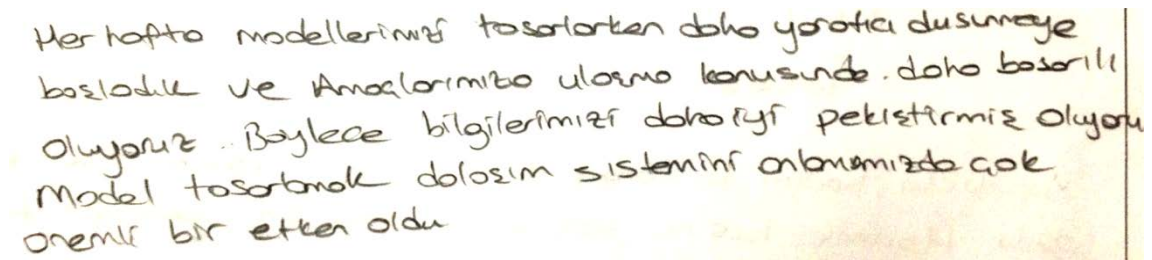 Her hafta modellerimizi tasarlarken daha yaratıcı dusunmeye
başladık ve Amaçlarımıza ulaşma konusunda. daha başarılı
oluyoruz. Boylece bilgilerimizi daha iyi pekiştirmiş oluyoru
Model tasarlamak dolaşım sistemini anlamamızda çok
onemli bir etken oldu